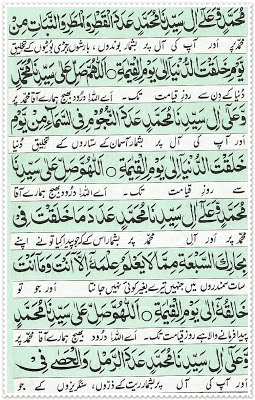 مُحَمَّدٍ وَّعَلٰٓى اٰلِ سَيِّدِنَا مُحَمَّدٍ عَدَدَ الْقَطْرِ وَالْمَطَرِ وَالنَّبَاتِ مِنْ
محمدؐ پر اور آپ کی آل پر بشمار بوندوں ، بارشوں جڑی بوٹیوں کے تخلیق
يَّوْمِ خَلَقْتَ الدُّنْيَآ اِلٰى يَوْمِ الْقِيٰمَةِ ○ اَللّٰهُمَّ صَلِّ عَلٰى سَيِّدِنَا مُحَمَّدٍ
دنیا کے دن سے روز قیامت تک۔ اے اللہ! درود بھیج ہمارے آقا محمدؐ پر
وَّعَلٰٓى اٰلِ سَيِّدِنَا مُحَمَّدٍ عَدَدَ النُّجُوْمِ فِى السَّمَآءِ مِنْ يَّوْمِ
اور آپ کی آل پر بشمار آسمان کے ستاروں کے تخلیق دنیا
خَلَقْتَ الدُّنْيَآ اِلٰى يَوْمِ الْقِيٰمَةِ ○ اَللّٰهُمَّ صَلِّ عَلٰى سَيِّدِنَا
سے روز قیامت تک۔ اے اللہ! درود بھیج ہمارے آقا
مُحَمَّدٍ وَّعَلٰٓى اٰلِ سَيِّدِنَا مُحَمَّدٍ عَدَدَ مَا خَلَقْتَ فِىْ
محمدؐ پر اور آل محمدؐ پر بشمار اس کے جو پیدا کیا تو نے اپنے
بِحَارِكَ السَّبْعَةِ مِمَّا لَا يَعْلَمُ عِلْمَهٗٓ اِلَّآ اَنْتَ وَمَآ اَنْتَ
سات سمندروں میں جنہیں تیرے بغیر کوئی نہیں جانتا اور جو تو
خَالِقُهٗٓ اِلٰى يَوْمِ الْقِيٰمَةِ ○ اَللّٰهُمَّ صَلِّ عَلٰى سَيِّدِنَا مُحَمَّدٍ
پیدا فرمانے والا ہے روز قیامت تک۔ اے اللہ! درود بھیج ہمارے آقا محمدؐ پر
وَّعَلٰٓى اٰلِ سَيِّدِنَا مُحَمَّدٍ عَدَدَ الرَّمْلِ وَالْحَصٰى فِىْ
اور آپ کی آل پر بشمار ریت کے ذروں، سنگریزوں کے جو